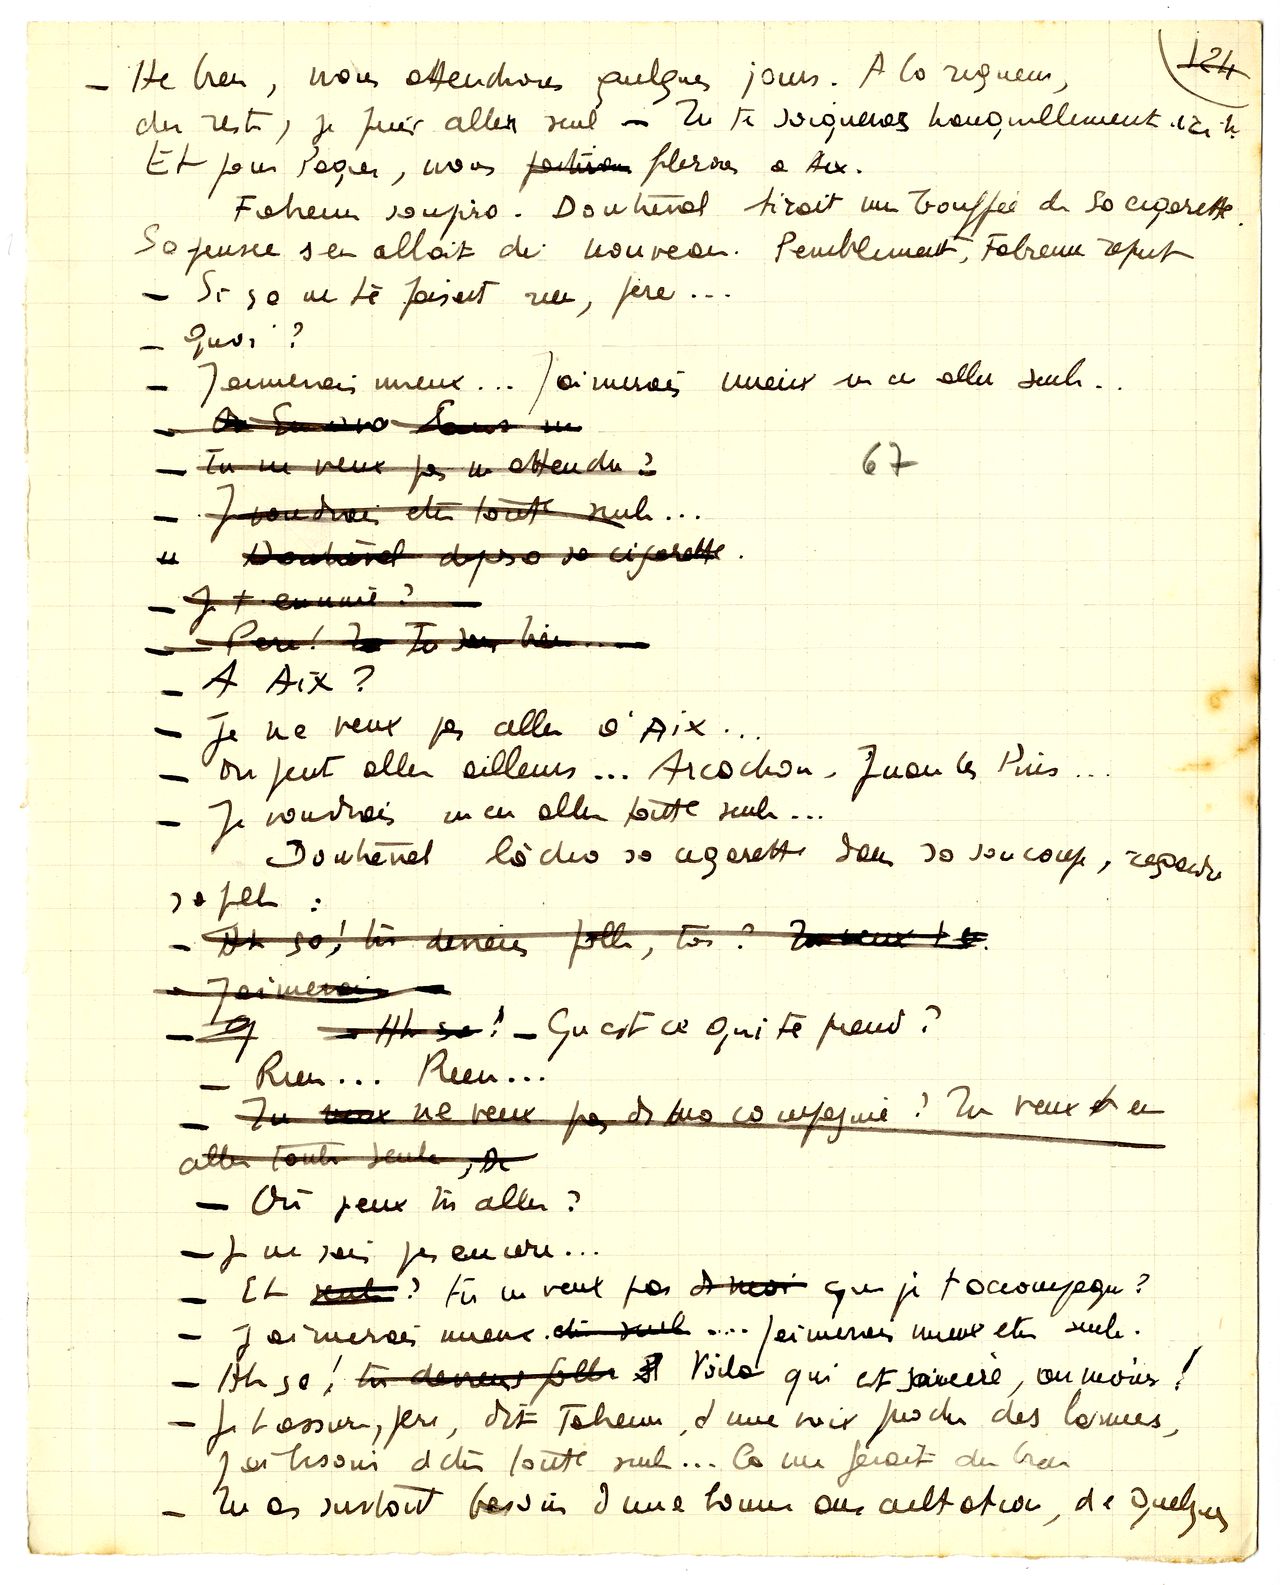 124
— He bien, nous attendrons quelques jours. A la rigueur,
du reste, je puis aller seul — Tu te soigneras tranquillement ici
Et pour Pâques, nous partirons filerons à Aix.
soupira. Douhénel tirait une bouffée de sa cigarette.
Sa pensée s'en allait de nouveau. Péniblement, reprit
— Si ça ne te faisait rien, père ...
— Quoi ?
— J'aimerais mieux ... J'aimerais mieux m'en aller seule ..
— Tu ne veux pas m'attendre ?
67
— Je voudrais être toute seule ...
Douhénel déposa sa cigarette.
— Je t'ennuie ?
— Père ! Tu sais bien ....
— A Aix ?
— Je ne veux pas aller à Aix ...
— On peut aller ailleurs ... Arcachon, Juan les Pins ...
— Je voudrais m'en aller toute seule ...
Douhénel lâcha sa cigarette dans sa soucoupe, regarda
sa fille :
— Ah ça ! tu deviens folle, toi ? Tu veux t
— J'aimerais
— Ah ça ! — Qu'est ce qui te prend ?
— Rien ... Rien ...
— Tu veux ne veux pas de ma compagnie ? Tu veux t'en
aller toute seule,
— Où veux tu aller ?
— Je ne sais pas encore ...
— Et seule ? tu ne veux pas de moi que je t'accompagne ?
— J'aimerais mieux être seule .... J'aimerais mieux être seule.
— Ah ça ! tu deviens folle Voilà qui est sincère, au moins !
— Je t'assure, père, dit d'une voix proche des larmes,
J'ai besoin d'être toute seule ... Ca me ferait du bien
— Tu as surtout besoin d'une bonne auscultation, de quelques